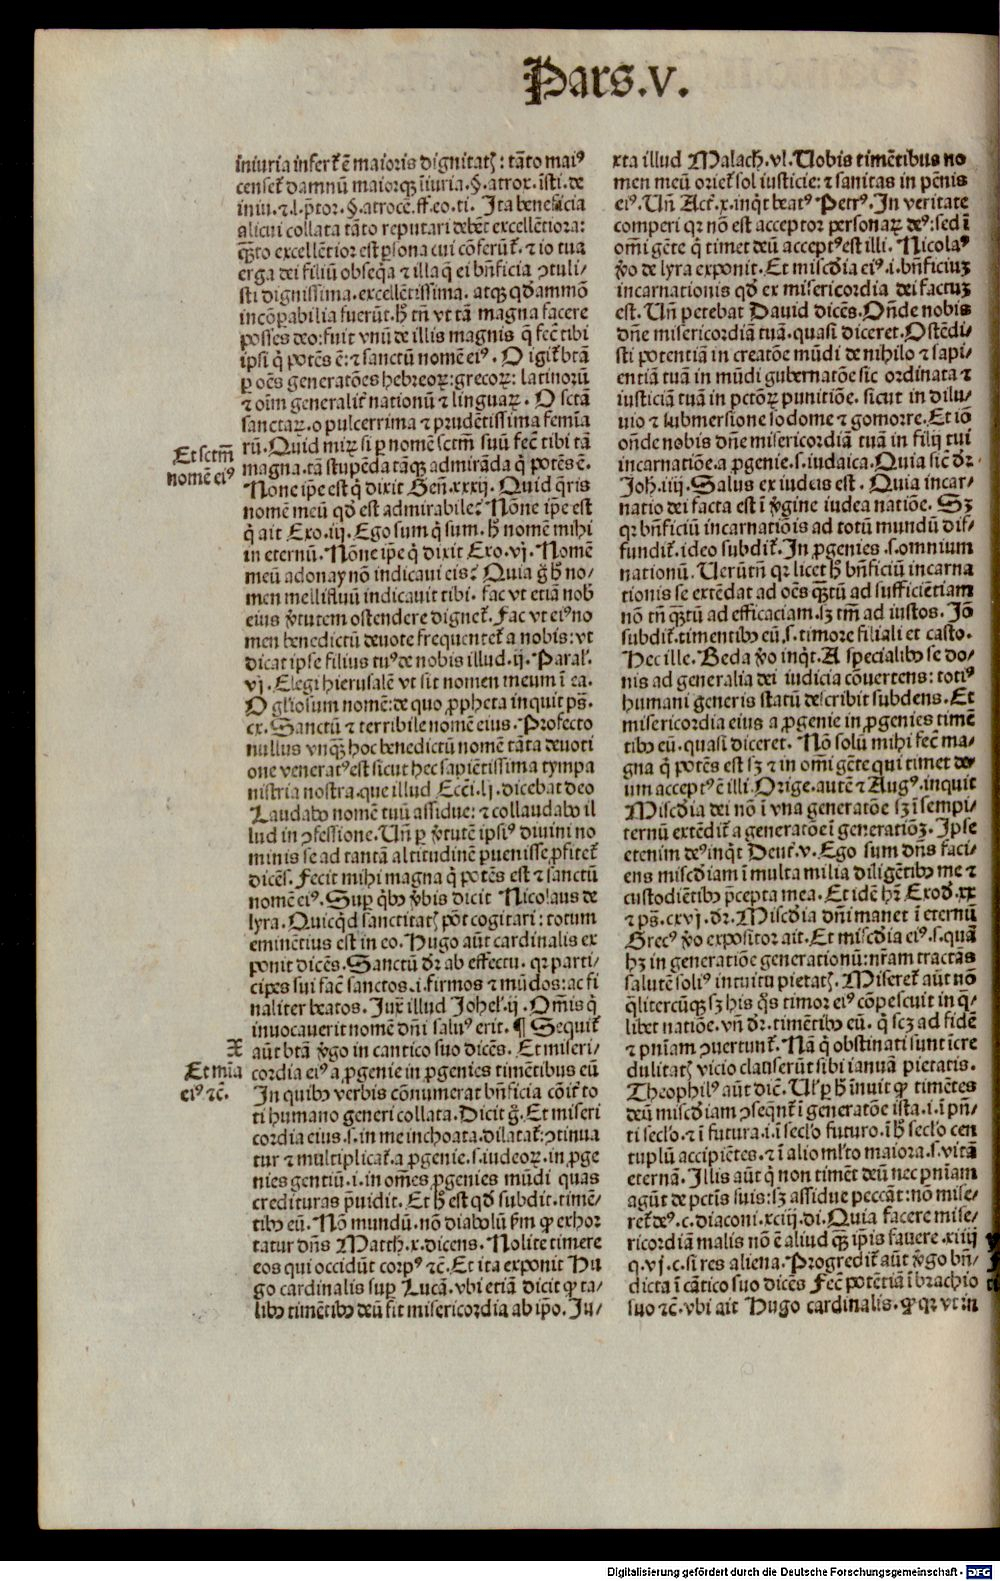 Pars.V.
iniuria infert̃ ẽ maioris dignitatꝭ: tãto maiꝰ
censet̃ damnũ maiorqꝫ iĩuria.§.atrox.ĩsti.de
iniu.⁊.l.p̃tor.§.atrocẽ.ff.eo.ti. Ita beneficia
alicui collata tãto reputari debẽt excellẽtiora:
q̃ꝫto excellẽtior est ꝑsona cui cõferũt̃.⁊ io tua
erga dei filiũ obseq̃a ⁊ illa q̃ ei bñficia ꝯtuli-
sti dignissima.excellẽtissima. atqꝫ qd̾ammõ
incõꝑabilia fuerũt. h̾ tñ vt tã magna facere
posses deo: fuit vnũ de illis magnis q̃ fec̃ tibi
ipsi q̃ potẽs ẽ: ⁊ sanctũ nomẽ eiꝰ. O igit̃ btã
ꝑ oẽs generatões hebreoꝝ: grecoꝝ: latinorũ
⁊ oĩm generalit̃ nationũ ⁊ linguaꝝ. O sctã
sanctaꝝ.o pulcerrima ⁊ prudẽtissima femĩa
rũ. Quid miꝝ si ꝑ nomẽ sctm̃ suũ fec̃ tibi tã
Et sctm̃
nomẽ eiꝰ
magna. tã stupẽda tãqꝫ admirãda q̃ potẽs ẽ.
None ip̃e est q̃ dixit Geñ.xxxij. Quid q̃ris
nomẽ meũ qd̾ est admirabile? Nõne ip̃e est
q̃ ait Exo.iij. Ego sum q̃ sum. h̾ nomẽ mihi
in eternũ. Nõne ip̃e q̃ dixit Exo.vj. Nomẽ
meũ adonay nõ indicaui eis? Quia g̾ h̾ no-
men mellifluũ indicauit tibi. fac vt etiã nob̾
eius v̾tutem ostendere dignet̃. Fac vt eiꝰ no
men benedictũ deuote frequentet̃ a nobis: vt
dicat ipse filius tuꝰ de nobis illud.ij. Paral̾.
vj. Elegi hierusalẽ vt sit nomen meum ĩ ea.
O gl̾iosum nomẽ: de quo ꝓpheta inquit ps̃.
cx. Sanctũ ⁊ terribile nomẽ eius. Profecto
nullus vnq̃ꝫ hoc benedictũ nomẽ tãta deuoti
one veneratꝰ est sicut hec sapiẽtissima tympa
nistria nostra. que illud Ecc̃i.lj. dicebat deo
Laudabo nomẽ tuũ assidue: ⁊ collaudabo il
lud in ꝯfessione. Uñ ꝑ v̾tutẽ ipsiꝰ diuini no
minis se ad tantã altitudinẽ ꝑuenisse ꝓfitet̃
dicẽs. Fecit mihi magna q̃ potẽs est ⁊ sanctũ
nomẽ eiꝰ. Suꝑ q̃bꝰ v̾bis dicit Nicolaus de
lyra. Quicq̃d sanctitatꝭ põt cogitari: totum
eminẽtius est in eo. Hugo aũt cardinalis ex
ponit dicẽs. Sanctũ dr̃ ab effectu. qꝛ parti-
cipes sui fac̃ sanctos.i.firmos ⁊ mũdos: ac fi
naliter beatos. Iux̃ illud Iohel̾.ij. Om̃is q̃
inuocauerit nomẽ dñi saluꝰ erit. ¶ Sequit̃
X
aũt btã v̾go in cantico suo dicẽs. Et miseri-
Et mĩa
eiꝰ ⁊c̃.
cordia eiꝰ a ꝓgenie in ꝓgenies timẽtibus eũ
In quibꝰ verbis cõnumerat bñficia cõit̃ to
ti humano generi collata. Dicit g̾. Et miseri
cordia eius.s.in me inchoata. dilatat̃: ꝯtinua
tur ⁊ multiplicat̃. a ꝓgenie.s.iudeoꝝ. in ꝓge
nies gentiũ.i.in om̃es ꝓgenies mũdi quas
credituras p̃uidit. Et h̾ est qd̾ subdit. timẽ-
tibꝰ eũ. Nõ mundũ. nõ diabolũ ẜm ꝙ exhor
tatur dñs Matth̾.x. dicens. Nolite timere
eos qui occidũt corpꝰ ⁊c̃. Et ita exponit Hu
go cardinalis suꝑ Lucã. vbi etiã dicit ꝙ ta-
libꝰ timẽtibꝰ deũ fit misericordia ab ip̃o. Iu-
xta illud Malach̾.vl̾. Uobis timẽtibus no
men meũ oriet̃ sol iusticie: ⁊ sanitas in pẽnis
eiꝰ. Uñ Act̃.x. inq̃t beatꝰ Petrꝰ. In veritate
comperi qꝛ nõ est acceptor personaꝝ deꝰ: sed ĩ
om̃i gẽte q̃ timet deũ acceptꝰ est illi. Nicolaꝰ
v̾o de lyra exponit. Et misc̃dia eiꝰ.i.bñficiuꝫ
incarnationis qd̾ ex misericordia dei factuꝫ
est. Uñ petebat Dauid dicẽs. Oñde nobis
dñe misericordiã tuã. quasi diceret. Ostẽdi-
sti potentiã in creatõe mũdi de nihilo ⁊ sapi-
entiã tuã in mũdi gubernatõe sic ordinata ⁊
iusticiã tuã in pctõꝝ punitiõe. sicut in dilu-
uio ⁊ submersione sodome ⁊ gomorre. Et iõ
oñde nobis dñe misericordiã tuã in filij tui
incarnatiõe. a ꝓgenie.s.iudaica. Quia sic̃ dr̃.
Ioh̾.iiij. Salus ex iudeis est. Quia incar-
natio dei facta est ĩ v̾gine iudea natiõe. Sꝫ
qꝛ bñficiũ incarnatiõis ad totũ mundũ dif-
fundit̃. ideo subdit̃. In ꝓgenies.s.omnium
nationũ. Uerũtñ qꝛ licet h̾ bñficiũ incarna
tionis se extẽdat ad oẽs q̃ꝫtũ ad sufficiẽtiam
nõ tñ q̃ꝫtũ ad efficaciam. sꝫ tm̃ ad iustos. Iõ
subdit̃. timentibꝰ eũ.s.timore filiali et casto.
Hec ille. Beda v̾o inq̃t. A specialibꝰ se do-
nis ad generalia dei iudicia cõuertens: totiꝰ
humani generis statũ describit subdens. Et
misericordia eius a ꝓgenie in ꝓgenies timẽ
tibꝰ eũ. quasi diceret. Nõ solũ mihi fec̃ ma-
gna q̃ potẽs est sꝫ ⁊ in om̃i gẽte qui timet de-
um acceptꝰ ẽ illi. Orige. autẽ ⁊ Augꝰ. inquit
Misc̃dia dei nõ ĩ vna generatõe sꝫ ĩ sempi-
ternũ extẽdit̃ a generatõe ĩ generatiõꝫ. Ipse
etenim deꝰ inq̃t Deut̃.v. Ego sum dñs faci-
ens misc̃diam ĩ multa milia diligẽtibꝰ me ⁊
custodiẽtibꝰ p̃cepta mea. Et idẽ hr̃ Exod̾.xx
⁊ ps̃.cxvj. dr̃. Misc̃dia dñi manet ĩ eternũ
Grecꝰ v̾o expositor ait. Et misc̃dia eiꝰ.s.quã
hꝫ in generatiõe generationũ: nr̃am tractas
salutẽ soliꝰ intuitu pietatꝭ. Miseret̃ aũt nõ
q̃litercũqꝫ sꝫ his q̃s timor eiꝰ cõpescuit in q̃-
libet natiõe. vñ dr̃. timẽtibꝰ eũ. q̃ scꝫ ad fidẽ
⁊ pnĩam ꝯuertunt̃. Nã q̃ obstinati sunt ĩcre
dulitatꝭ vicio clauserũt sibi ianuã pietatis.
Theophilꝰ aũt dic̃. Ul̾ ꝑ h̾ ĩnuit ꝙ timẽtes
deũ misc̃diam ꝯseq̃nt̃ ĩ generatõe ista.i.ĩ p̃ñ-
ti secl̾o.⁊ ĩ futura.i.ĩ secl̾o futuro. ĩ h̾ secl̾o cen
tuplũ accipiẽtes.⁊ ĩ alio ml̾to maiora.s.vitã
eternã. Illis aũt q̃ non timẽt deũ nec pnĩam
agũt de pctĩs suis: sꝫ assidue peccãt: nõ mise-
ret̃ deꝰ.c.diaconi.xciij.di. Quia facere mise-
ricordiã malis nõ ẽ aliud q̃ꝫ ip̃is fauere.xiiij
q.vj.c.si res aliena. Progredit̃ aũt v̾go bñ-
dicta ĩ cãtico suo dicẽs Fec̃ potẽtiã ĩ brachio
suo ⁊c̃. vbi ait Hugo cardinalis. ꝙ qꝛ vt in
Digitalisierung gefördert durch die Deutsche Forschungsgemeinschaft - DFG